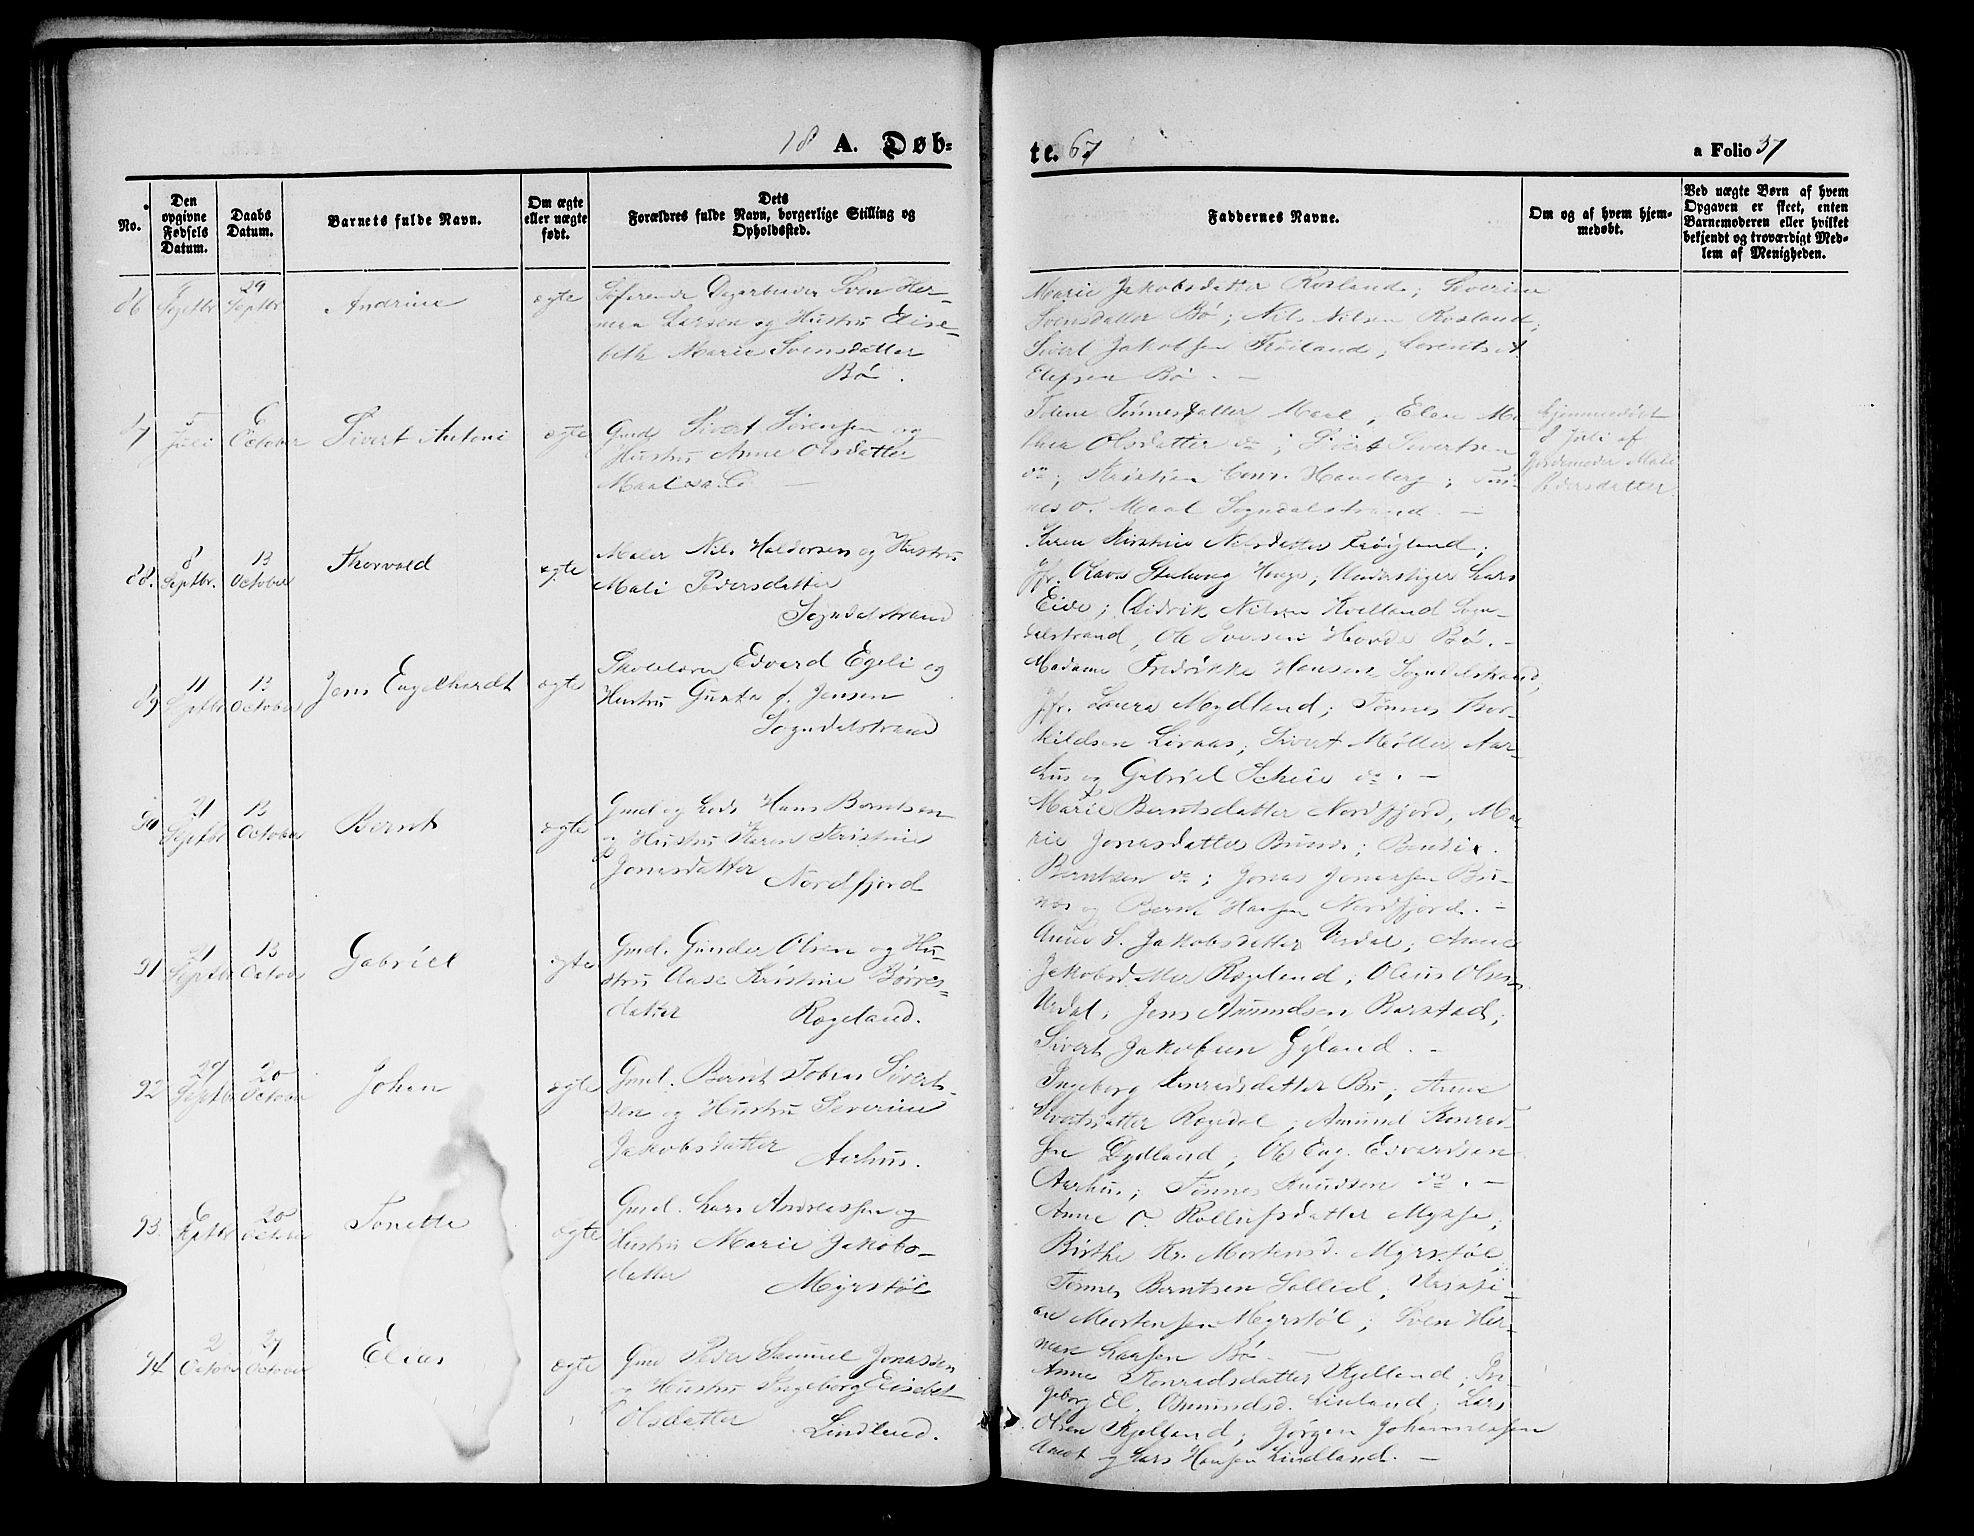 18 A. Døb-
te. 67
a Folio 37
No.
Den opgivne Fødsels Datum.
Daabs Datum.
Barnets fulde Navn.
Om ægte eller uægte født.
Dets Forældres fulde Navn, borgerlige Stilling og Opholdssted.
Faddernes Navne.
Om og af hvem hjemmedøbt.
Ved uægte Børn af hvem Opgaven er skeet, enten Barnemoderen eller hvilket bekjendt og troværdigt Medlem af Menigheden.
86
Septbr
29 Septbr
Andrine
ægte
Søfarende Dagarbeider Sven Her-
man Larsen og Hustru Elise-
beth Marie Svensdatter
Bø.
Marie Jakobsdatter Rosland; Severine
Svensdatter Bø; Nils Nilsen Rosland;
Sivert Jakobsen Frøiland; Lorents
Elefsen Bø. —
87
5 Juli
6 October
Sivert Antoni
ægte
Gmd Sivert Sørensen og
Hustru Anne Olsdatter
Maal
Tønnesdatter Maal; Elen Ma-
Olsdatter do; Sivert Sivertsen
do; Kristian Haneberg; Tøn-
nes O. Maal Sogndalstrand. —
hjemmedøbt
8 Juli af
Jordemoder Mali
Pedersdatter
88.
8 Septbr.
13 October
Thorvald
ægte
Maler Nils Haldorsen og Hustru
Mali Pedersdatter
Sogndalstrand
Karen Kirstine Nilsdatter Frøiland;
Jfr. Olava Hauge; Understiger Lars
Eide; Didrik Nilsen Kvelland Sogn-
dalstrand, Ole Iversen Hovde Bø. —
89
11 Septbr
13 October
Jens Engelhardt
ægte
Skolelærer Edvard Egeli og
Hustru Gunda f. Jensen
Sogndalstrand
Madame Fredrikke Hansen Sogndalstrand,
Jfr. Laura Mydland; Tønnes Thor-
kildsen Livaas; Sivert Møller Aar-
hus og Gabriel Scheie do. —
90
21 Septbr
13 October
Bernt
ægte
Gmd og Lods Hans Berntsen
og Hustru Karen Kristine
Jonasdatter Nordfjord
Marie Berntsdatter Nordfjord, Ma-
rie Jonasdatter Bunes; Bendix
Berntsen do; Jonas Jonassen Bu-
nes og Bernt Hansen Nordfjord. —
91
21 Septbr
13 Octobr
Gabriel
ægte
Gmd. Gunder Olsen og Hu-
stru Aase Kristine Børres-
datter Rogeland.
Anne S. Jakobsdatter Urdal; Anne
Jakobsdatter Rogeland; Oleus Olsen
Urdal; Jens Amundsen Barstad;
Sivert Jakobsen Gyland. —
92
29 Septbr
20 October
Johan
ægte
Gmd. Bernt Tobias Sivert-
sen og Hustru Severine
Jakobsdatter Aarhus.
Ingeborg Konradsdatter Bø; Anne
Sivertsdatter Rogdal; Amund Konrad-
sen Dydland; Ole Eng. Edvardsen
Aarhus; Tønnes Knudsen do. —
93.
6 Septbr
20 October
Tonette
ægte
Gmd. Lars Andreassen og
Hustru Marie Jakobs-
datter
Myrstøl
Anne O. Rollufsdatter Mysse;
Birthe Kr. Mortensd. Myrstøl
Tønnes Berntsen Sollied;
Mortensen Myrstøl; Sven Her-
man Larsen Bø —
94
2 Octobr
27 October
Elias
ægte
Gmd Peder Samuel Jonassen
og Hustru Ingeborg Elisabet
Olsdatter
Lindland.
Anne Konradsdatter Kjelland; In-
geborg El. Omundsd. Linland; Lars
Olsen Kjelland; Jørgen Johannessen
Aamot og Lars Hansen Lindland. —